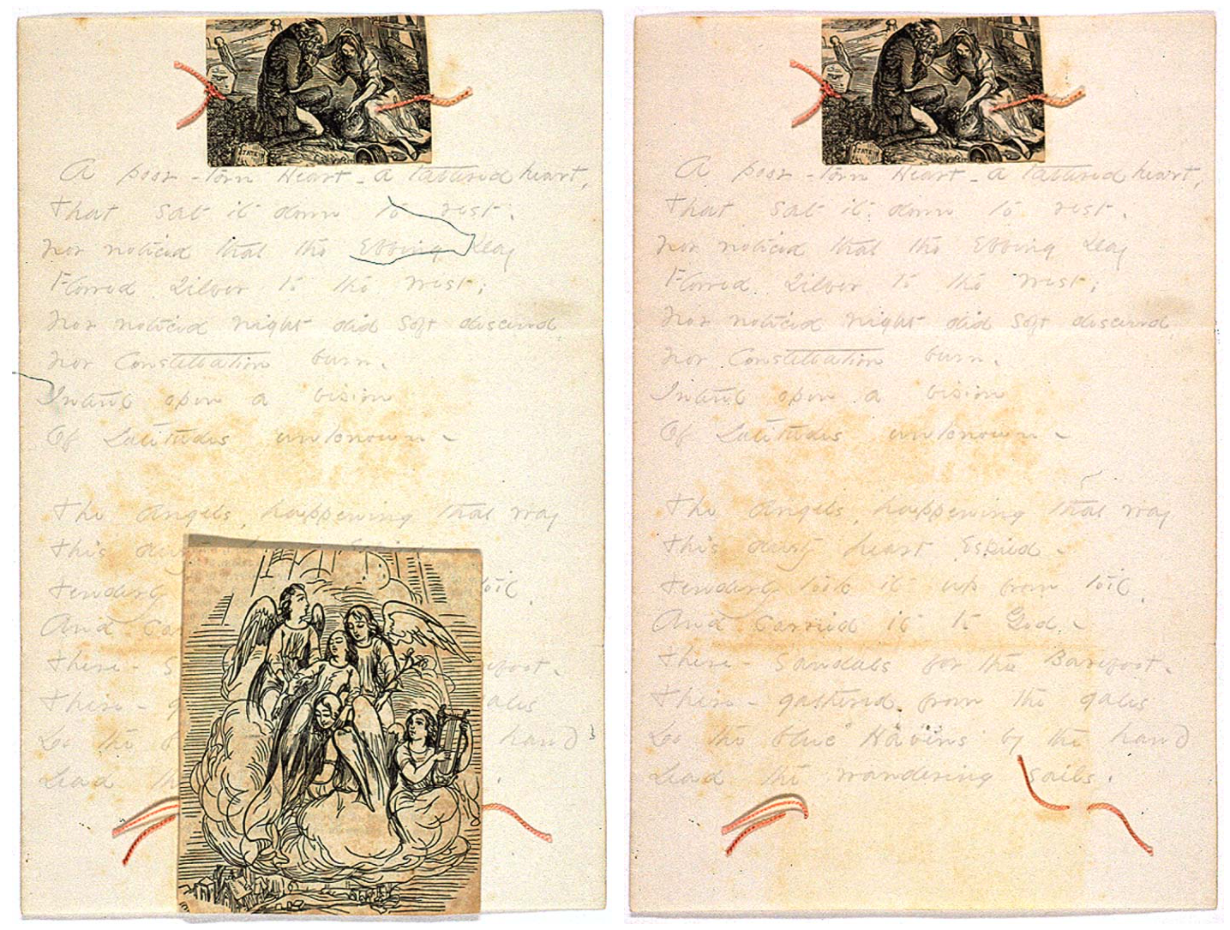 A poor - torn Heart - a tattered heart,
That sat it down to rest.
Nor noticed that the Ebbing Day
Flowed Silver to the West;
Nor noticed night did soft descend
Nor Constellation burn.
Intent upon a vision
Of Latitudes unknown -
The Angels, happening that way
This
Tenderly toil,
And
There -
There -
Do the hand
Lead
A poor - torn Heart - a tattered heart,
That sat it down to rest.
Nor noticed that the Ebbing Day
Flowed Silver to the West;
Nor noticed night did soft descend
Nor Constellation burn.
Intent upon a vision
Of Latitudes unknown -
The Angels, happening that way
This dusty heart Espied -
Tenderly took it up from toil,
And carried it to God -
There - Sandals for the Barefoot -
There - gathered from the gales
Do the blue Havens by the hand
Lead the wandering Sails.